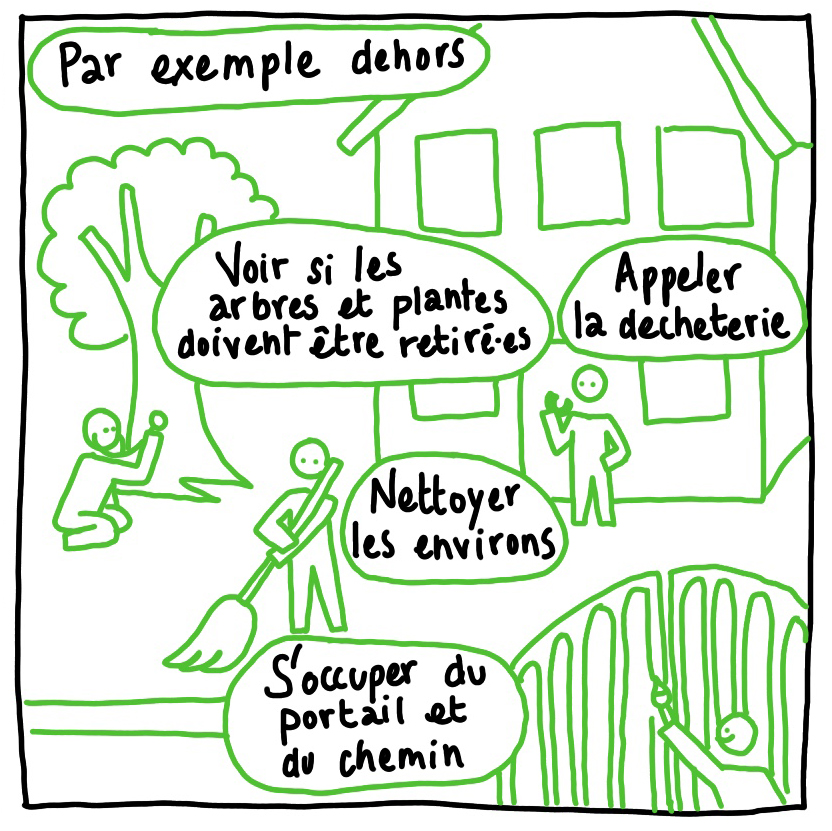 Par exemple dehors
Voir si les
arbres et plantes
doivent être retiré·es
Appeler
la decheterie
Nettoyer
les environs
S'occuper du
portail et
du chemin